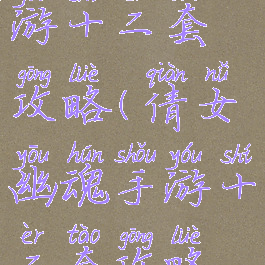 游十二套
gōng lüè qiàn nǚ
攻略(倩女
yōu hún shǒu yóu shí
幽魂手游十
èr tào gōng lüè